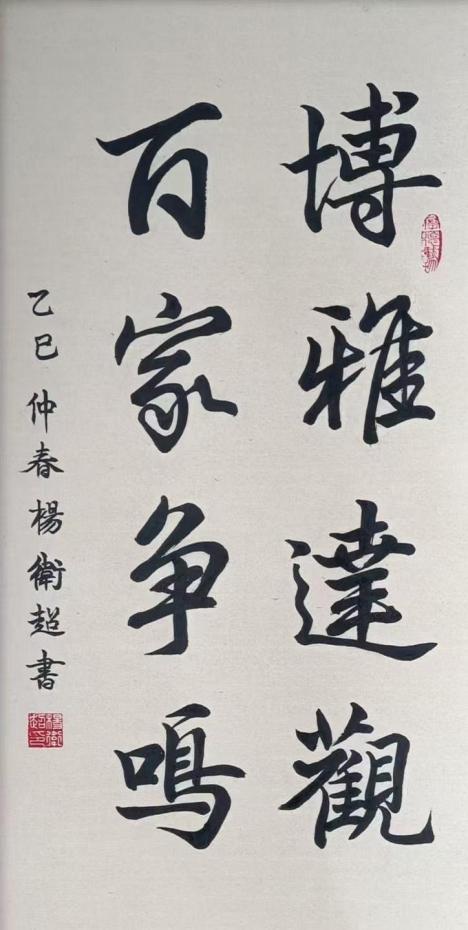 博雅達觀
百家争鳴
乙巳仲春楊衛超書
楊衛超印